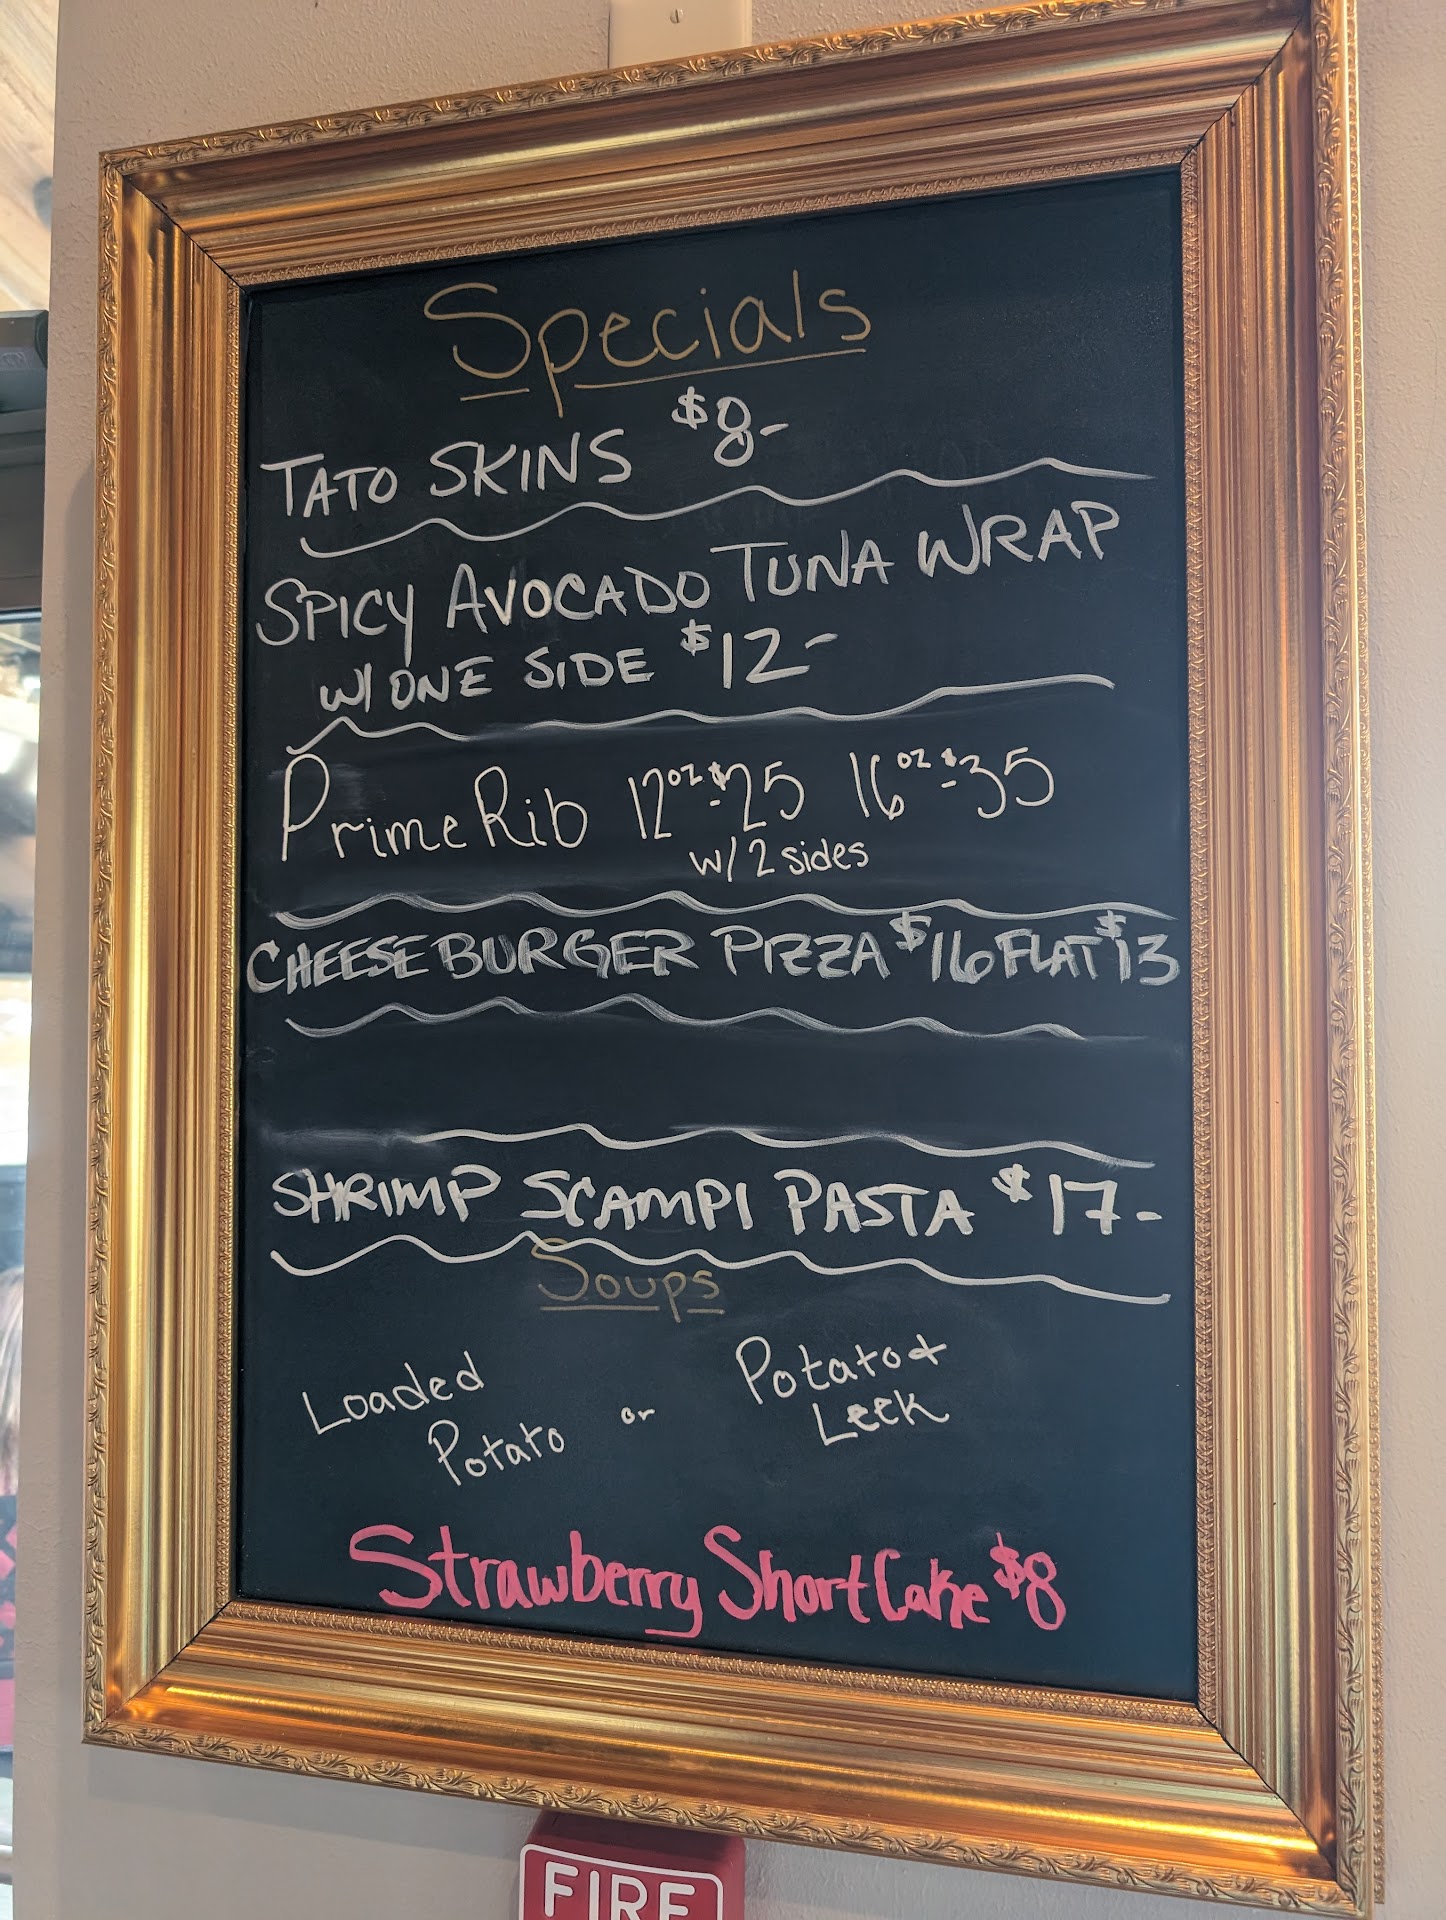 Specials
TATO SKINS $8-
SPICY AVOCADO TUNA WRAP
W/ ONE SIDE $12-
Prime Rib 12oz $25 16oz $35
w/ 2 sides
CHEESE BURGER PIZZA $16 FLAT $13
SHRIMP SCAMPI PASTA $17-
Soups
Loaded Potato or Potato & Leek
Strawberry Short Cake $8
FIRE